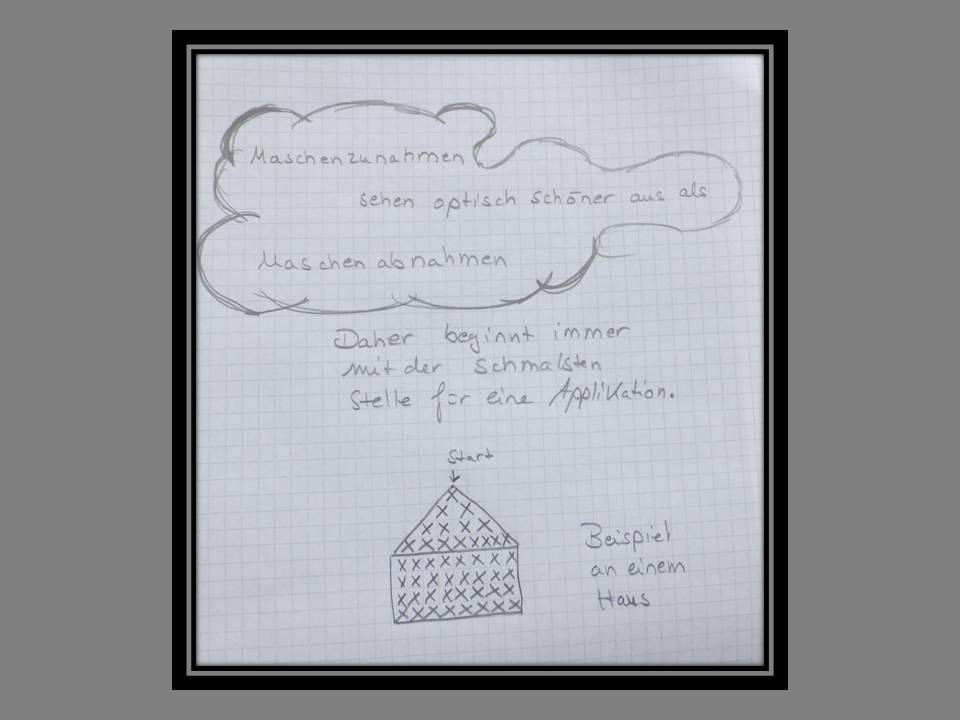 Maschenzunahmen
sehen optisch schöner aus als
Maschenabnahmen
Daher beginnt immer
mit der schmalsten
Stelle für eine Applikation.
Start
Beispiel
an einem
Haus